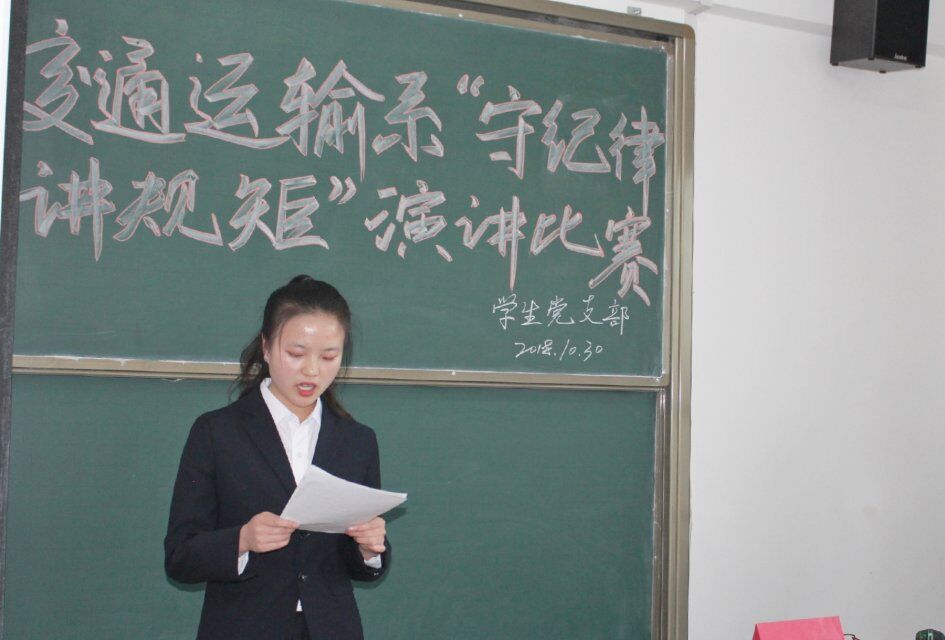 交通运输系“守纪律
讲规矩”演讲比赛
学生党支部
2018.10.30